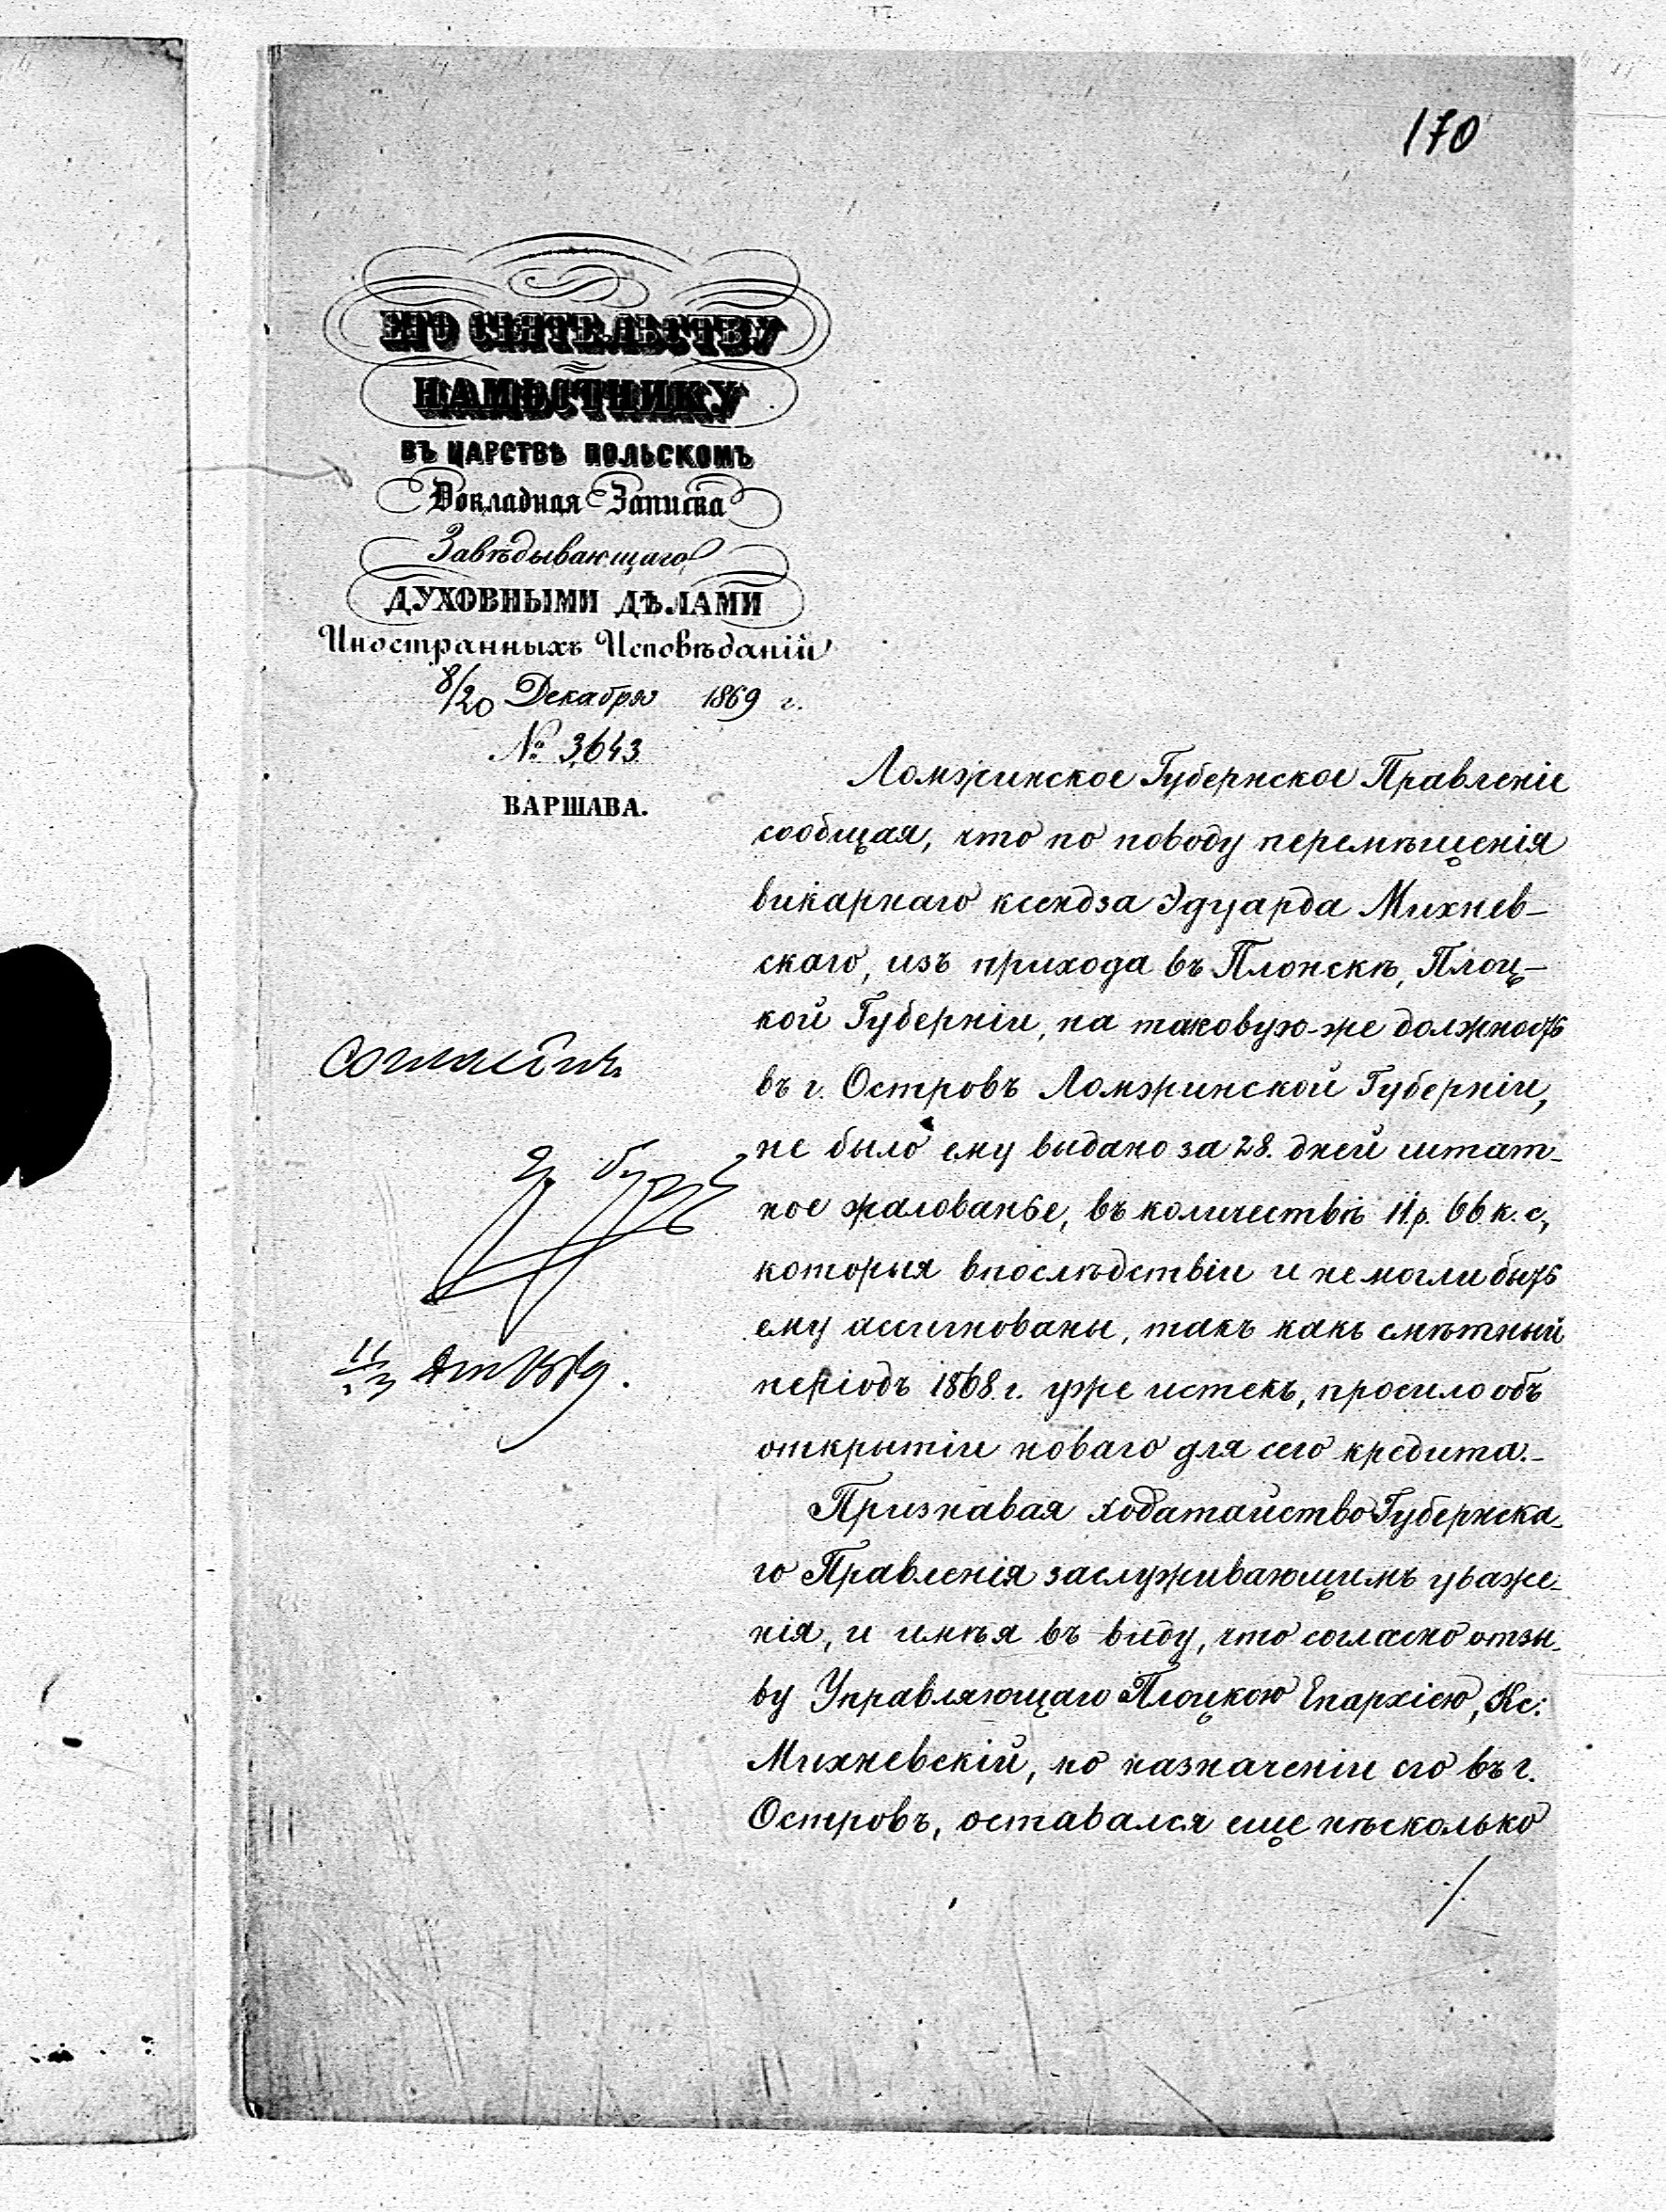 170
ЕГО СІЯТЕЛЬСТВУ
НАМѢСТНИКУ
ВЪ ЦАРСТВѢ ПОЛЬСКОМЪ
Докладная Записка
Завѣдывающаго
ДУХОВНЫМИ ДѢЛАМИ
Иностранныхъ Исповѣданій
8/20 Декабря 1869 г.
№ 3643
ВАРШАВА.
Ломжинское Губернское Правленіе
сообщая, что по поводу перемѣщенія
викарнаго ксендза Эдуарда Михнев-
скаго, изъ прихода въ Плонскѣ, Плоц-
кой Губерніи, на таковую-же должность
въ г. Островъ Ломжинской Губерніи,
не было ему выдано за 28. дней штат-
ное жалованье, въ количествѣ 11 р. 66 к. с.,
которыя впослѣдствіи и не могли быть
ему ассигнованы, такъ какъ смѣтный
періодъ 1868 г. уже истекъ, просило объ
открытіи новаго для сего кредита.-
Признавая ходатайство Губернска-
го Правленія заслуживающимъ уваже-
нія, и имѣя въ виду, что согласно отзы-
ву Управляющаго Плоцкою Епархіею, Кс:
Михневскій, по назначеніи его въ г.
Островъ, оставался еще нѣсколько
./.
Согласенъ.